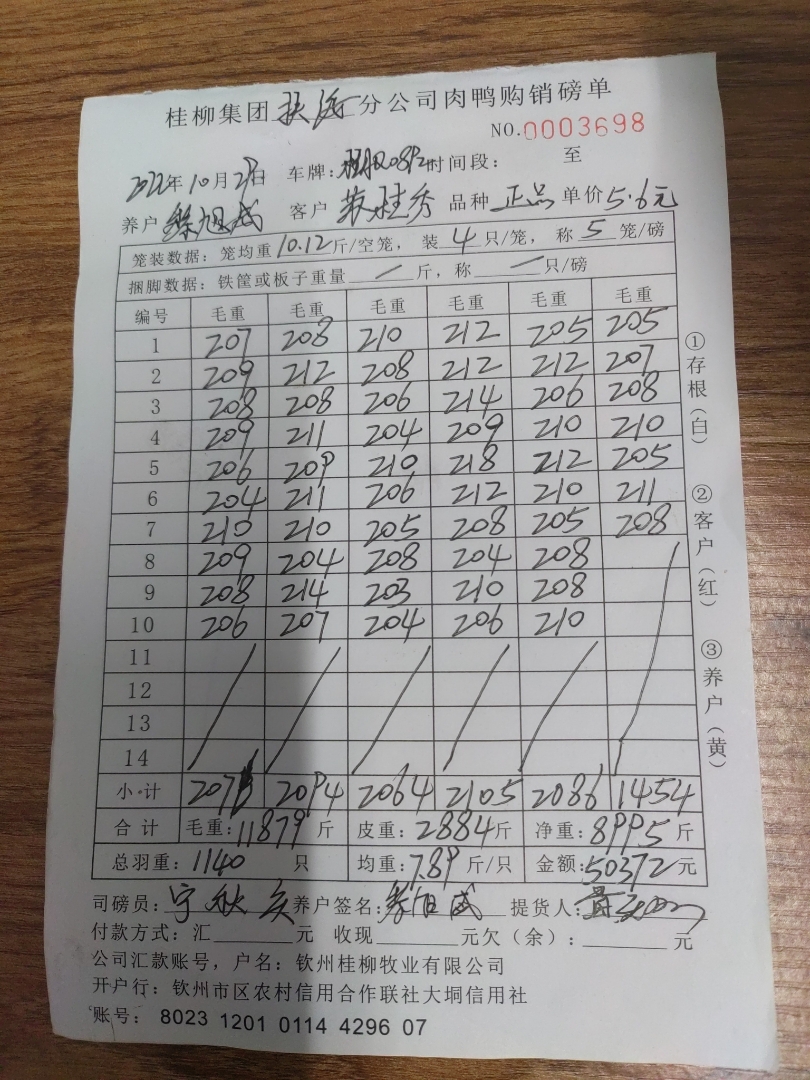 桂柳集团 扶 分公司肉鸭购销磅单
NO.0003698
2022年10月29日 车牌: 时间段: 至
养户 旭武 客户 桂秀 品种 正品 单价5.6元
笼装数据: 笼均重10.12斤/空笼, 装4只/笼, 称5笼/磅
捆脚数据: 铁筐或板子重量 / 斤, 称 / 只/磅
编号 毛重 毛重 毛重 毛重 毛重 毛重
1 207 208 210 212 205 205
2 209 212 208 212 212 207
3 208 208 206 214 206 208
4 209 211 204 209 210 210
5 206 209 210 218 212 205
6 204 211 206 212 210 211
7 210 210 205 208 205 208
8 209 204 208 204 208
9 208 214 203 210 208
10 206 207 204 206 210
11
12
13
14
小计 2076 2094 2064 2105 2086 1454
合计 毛重:11879斤 皮重:2884斤 净重:8995斤
总羽重:1140只 均重:7.89斤/只 金额:50372元
司磅员: 宁秋 养户签名: 旭武 提货人:
付款方式: 汇 元 收现 元欠(余): 元
公司汇款账号, 户名: 钦州桂柳牧业有限公司
开户行: 钦州市区农村信用合作联社大垌信用社
账号: 8023 1201 0114 4296 07
①存根(白)
②客户(红)
③养户(黄)